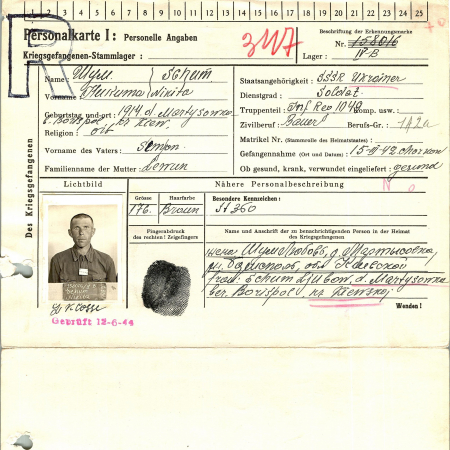 1 2 3 4 5 6 7 8 9 10 11 12 13 14 15 16 17 18 19 20 21 22 23 24 25
Personalkarte I: Personelle Angaben
Kriegsgefangenen-Stammlager:
R
Beschriftung der Erkennungsmarke
Nr. 158016
Lager: IV-B
Des Kriegsgefangenen
Name: Шум Schum
Vorname: Никита Nikita
Geburtstag und -ort: 1914 d. Martysowka
Religion: ort
Vorname des Vaters: Semjon
Familienname der Mutter:
Staatsangehörigkeit: SSSR Ukrainer
Dienstgrad: Soldat
Truppenteil: Inf Reg 1049 Komp. usw.:
Zivilberuf: Bauer Berufs-Gr.: 142a
Matrikel Nr. (Stammrolle des Heimatstaates):
Gefangennahme (Ort und Datum): 15-III-42
Ob gesund, krank, verwundet eingeliefert: gesund
Lichtbild
Nähere Personalbeschreibung
Grösse Haarfarbe Besondere Kennzeichen:
176. Braun
Fingerabdruck
des rechten! Zeigefingers
Name und Anschrift der zu benachrichtigenden Person in der Heimat
des Kriegsgefangenen
жена Шум Любовь, д. Мартысовка
обл. Киевской
Frau: Schum Ljubow, d. Martysowka
Borispol
Wenden!
Geprüft 12-6-44